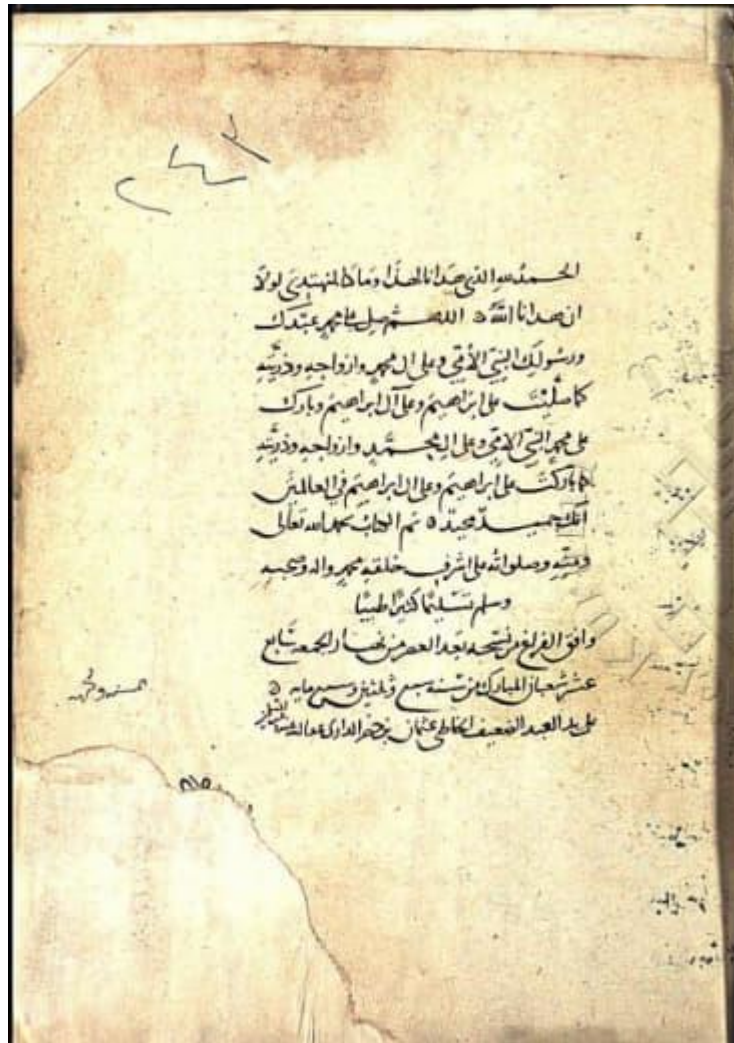 ٢٤٣
الحمد لله الذي هدانا لهذا وما كنا لنهتدي لولا
ان هدانا الله ه اللهم صل على محمد عبدك
ورسولك النبي الأمي وعلى ال محمد وازواجه وذريته
كما صليت على ابراهيم وعلى آل ابراهيم وبارك
على محمد النبي الامي وعلى ال محمد وازواجه وذريته
كما باركت على ابراهيم وعلى ال ابراهيم في العالمين
انك حميد مجيد ه تم الكتاب بحمد الله تعالى
ومنه وصلواته على اشرف خلقه محمد واله وصحبه
وسلم تسليما كثيرا طيبا
وافق الفراغ من نسخه بعد العصر من نهار الجمعه سابع
عشر شعبان المبارك من سنه سبع وثلثين وسبع مايه ه
على يد العبد الضعيف الخاطي عثمان بن